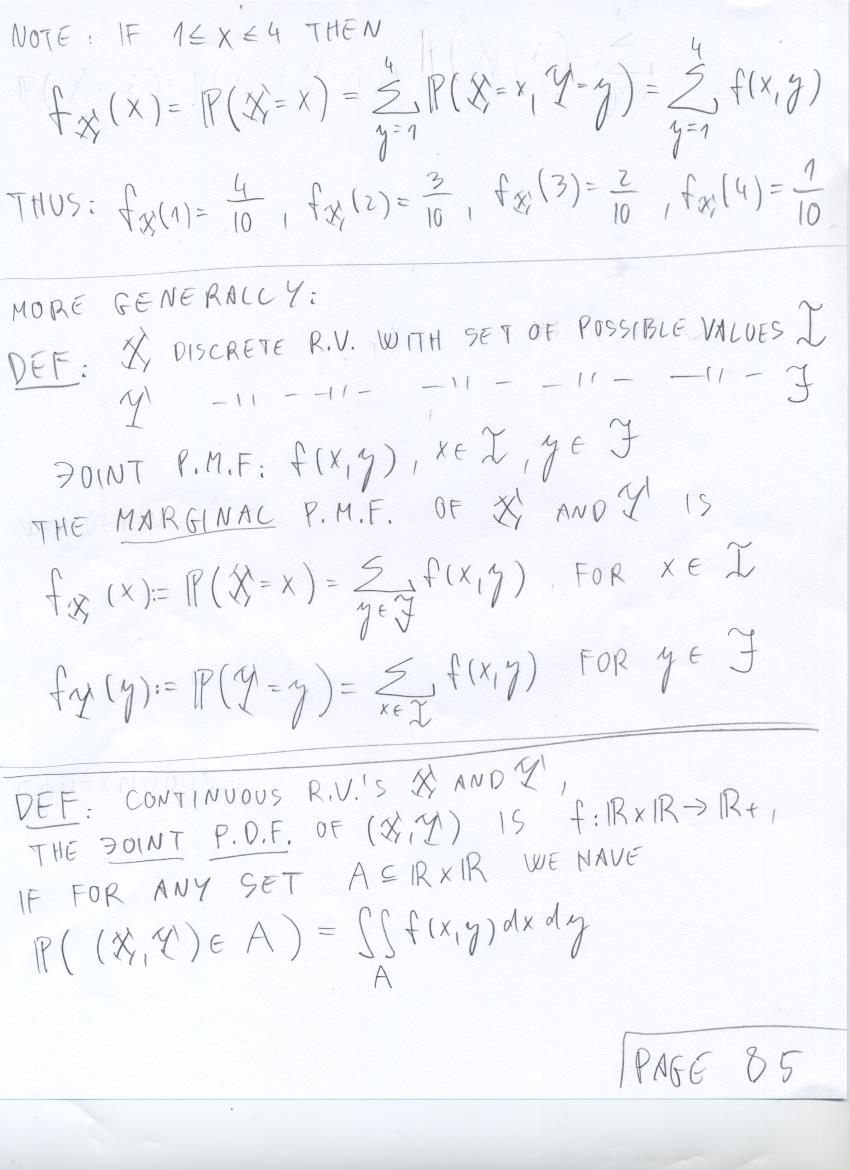 NOTE: IF 1 ≤ x ≤ 4 THEN
f_𝕏(x) = ℙ(𝕏=x) = ∑_{y=1}^{4} ℙ(𝕏=x, 𝕐=y) = ∑_{y=1}^{4} f(x,y)
THUS: f_𝕏(1) = 4/10, f_𝕏(2) = 3/10, f_𝕏(3) = 2/10, f_𝕏(4) = 1/10
MORE GENERALLY:
DEF: 𝕏 DISCRETE R.V. WITH SET OF POSSIBLE VALUES ℐ
𝕐 -11- -11- -11- -11- -11- 𝒥
JOINT P.M.F: f(x,y), x ∈ ℐ, y ∈ 𝒥
THE MARGINAL P.M.F. OF 𝕏 AND 𝕐 IS
f_𝕏(x) := ℙ(𝕏=x) = ∑_{y∈𝒥} f(x,y) FOR x ∈ ℐ
f_𝕐(y) := ℙ(𝕐=y) = ∑_{x∈ℐ} f(x,y) FOR y ∈ 𝒥
DEF: CONTINUOUS R.V.'S 𝕏 AND 𝕐,
THE JOINT P.D.F. OF (𝕏,𝕐) IS f: ℝ×ℝ → ℝ+,
IF FOR ANY SET A ⊆ ℝ×ℝ WE HAVE
ℙ((𝕏,𝕐) ∈ A) = ∬_A f(x,y) dx dy
PAGE 85